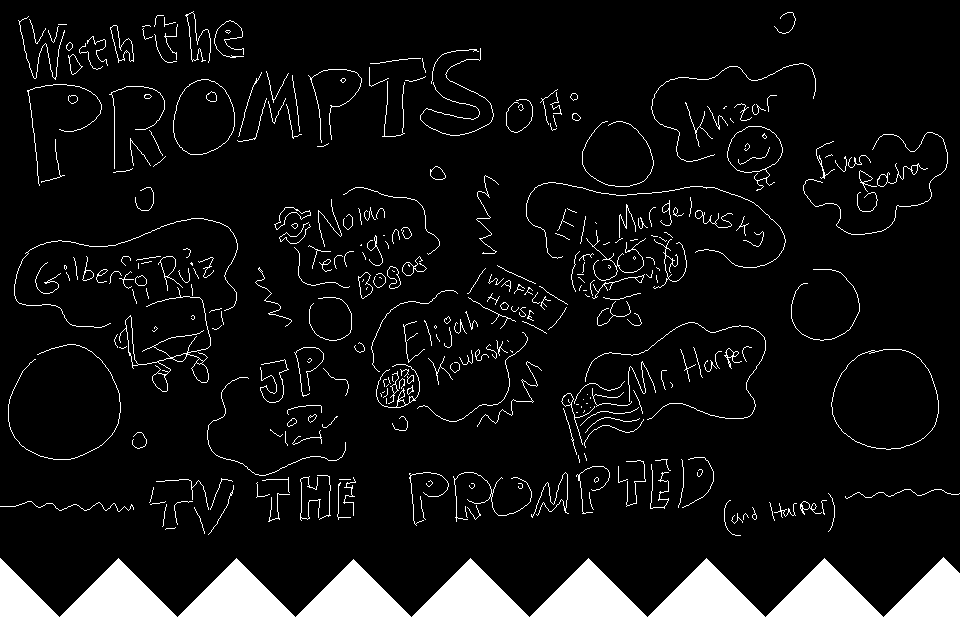 With the
PROMPTS OF:
Khizar
Evan
Rocha
Nolan
Terrigino
Bogos
Eli Margelowsky
Gilberto Ruiz
WAFFLE
HOUSE
Elijah
Kowenski
JP
Mr. Harper
TV THE PROMPTED
(and Harper)